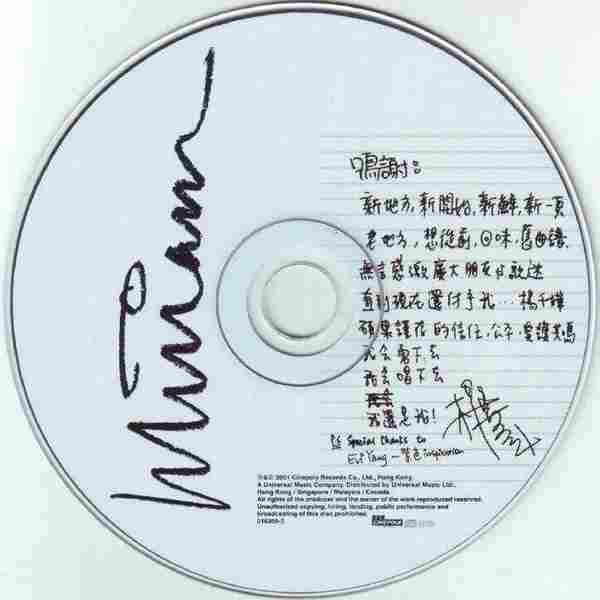 Miriam
鳴謝：
新地方，新開始，新鮮，新一頁
老地方，想從前，回味，舊曲譜
無言感激廣大朋友及歌迷
直到現在還付予我...楊千嬅
的信任，公平，愛護
我會唱下去
我還是我！
PS Special thanks to
Evi Yang - inspiration
℗&© 2001 Cinepoly Records Co., Ltd., Hong Kong.
A Universal Music Company. Distributed by Universal Music Ltd.,
Hong Kong / Singapore / Malaysia / Canada.
All rights of the producer and the owner of the work reproduced reserved.
Unauthorized copying, hiring, lending, public performance and
broadcasting of this disc prohibited.